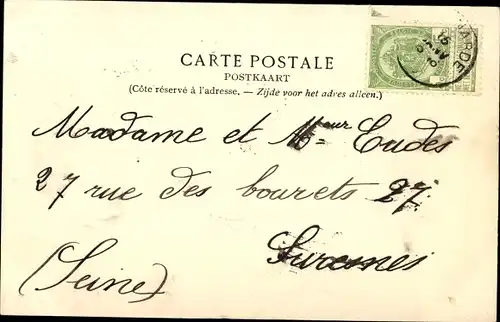 CARTE POSTALE
POSTKAART
(Côte réservé à l'adresse. — Zijde voor het adres alleen.)
Madame et Mᵉᵘʳ Eudes
27 rue des bourets 27
Suresnes
(Seine)